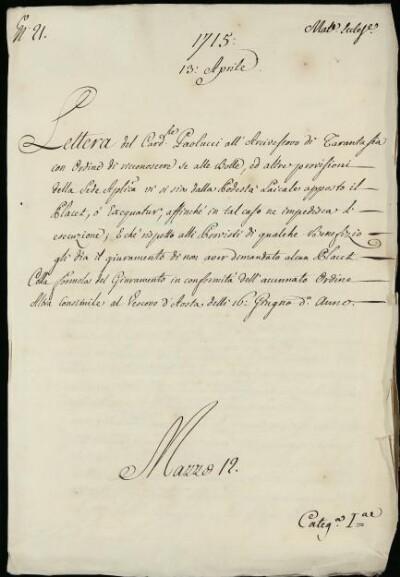 N. 21.
Mat.e Eccles.e
1715:
13: Aprile.
Lettera del Card.le Paolucci all' Arcivescovo di Tarantasia
con Ordine di riconoscere se alle Bolle, ed altre provisioni
della Sede Aplica vi si sia dalla Podestà Laicale apposto il
Placet, ò Exequatur, affinchè in tal caso ne impedisca l'
esecuzione; E chè rispetto alli Provisti di qualche Benefizio
gli dia il giuramento di non aver domandato alcun Placet
Colla formola del Giuramento in conformità dell' accennato Ordine
Altra Consimile al Vescovo d'Aosta delli 16: Giugno d.o Anno.
Mazzo 12.
Categ.a I.ae